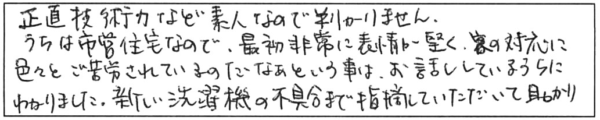 正直技術力など素人なので判りません。
うちは市営住宅なので、最初非常に表情が堅く、客の対応に
色々とご苦労されているのだなあという事は、お話ししているうちに
わかりました。新しい洗濯機の不具合まで指摘していただいて助かり